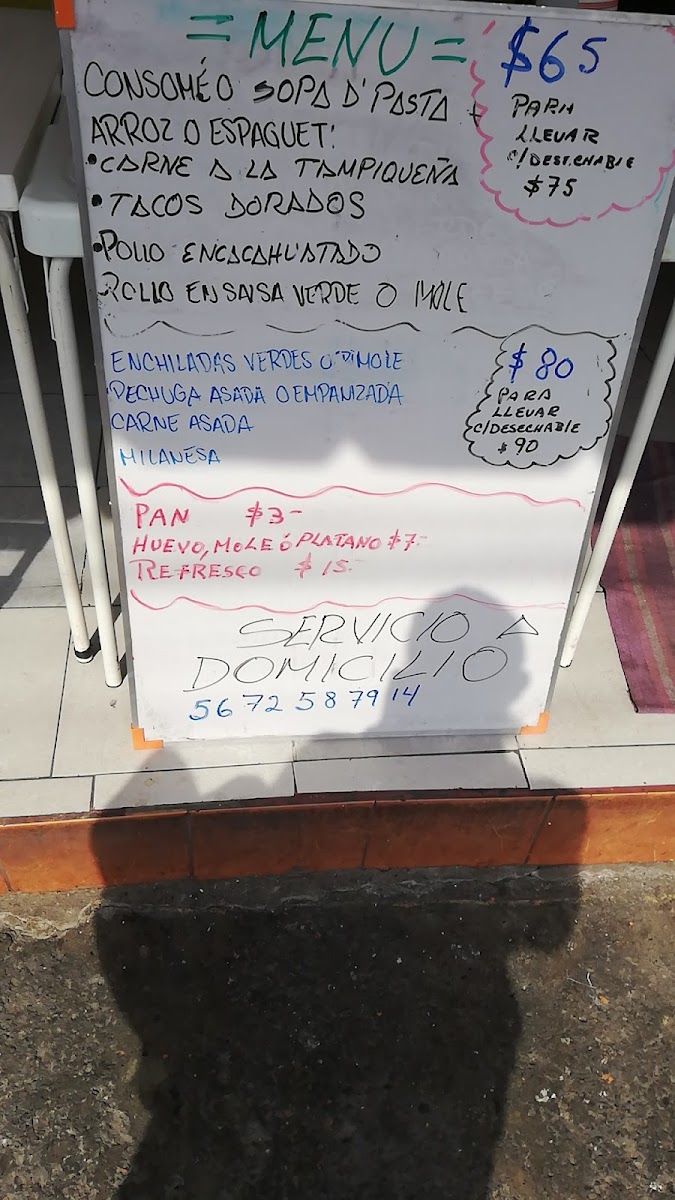 = MENU =
$65
CONSOMÉ O SOPA D'PASTA
PARA
LLEVAR
C/DESECHABLE
$75
ARROZ O ESPAGUET:
•CARNE A LA TAMPIQUEÑA
•TACOS DORADOS
•POLLO ENCACAHUATADO
•POLLO EN SALSA VERDE O MOLE
ENCHILADAS VERDES O D'MOLE
PECHUGA ASADA O EMPANIZADA
CARNE ASADA
MILANESA
$80
PARA
LLEVAR
C/DESECHABLE
$90
PAN $3-
HUEVO, MOLE Ó PLATANO $7-
REFRESCO $15-
SERVICIO A
DOMICILIO
56 72 58 79 14